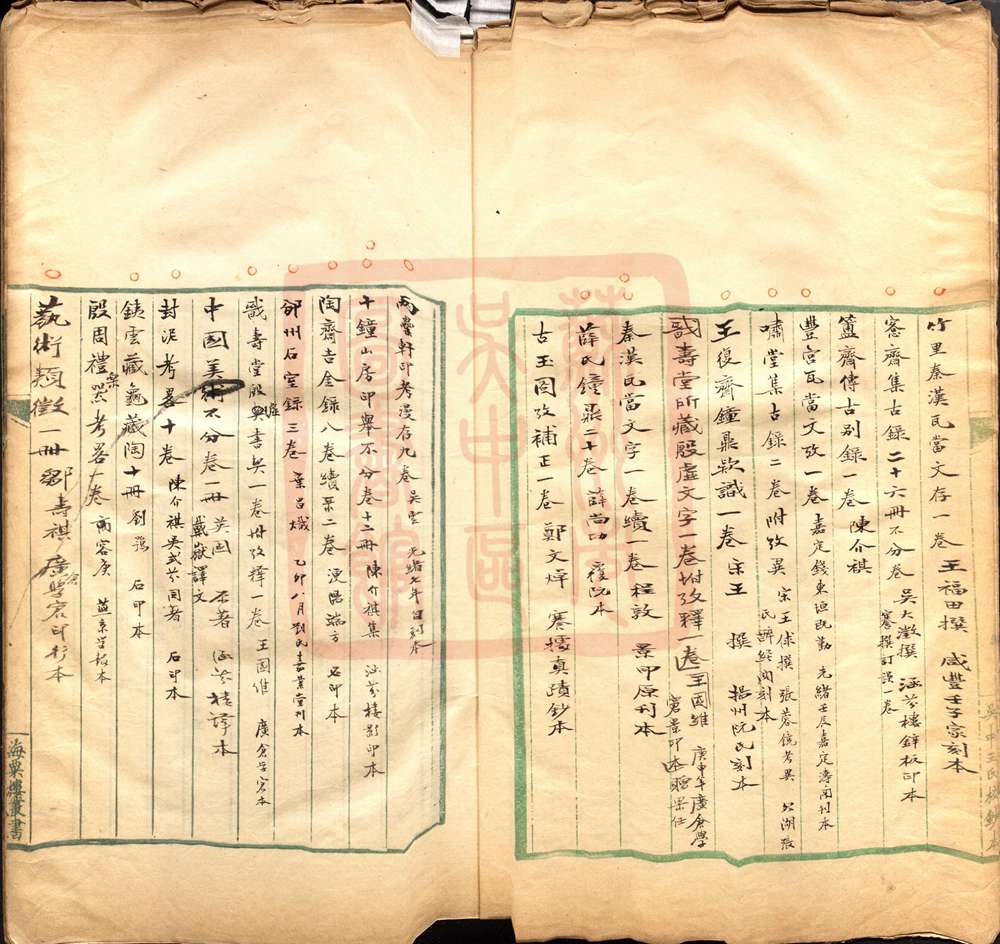 竹里秦漢瓦當文存一卷 王福田撰 咸豐壬子家刻本
愙齋集古錄二十六冊不分卷 吳大澂撰 涵芬樓鋅板印本
簠齋傳古別錄一卷 陳介祺
豐宮瓦當文攷一卷 嘉定錢東垣既勤 光緒壬辰嘉定
嘯堂集古錄二卷附攷異 宋王俅撰 張蓉鏡考異
王復齋鐘鼎款識一卷 宋王 撰 揚州阮氏刻本
戩壽堂所藏殷虛文字一卷附攷釋一卷 王國維 庚申年廣倉學窘景印本
秦漢瓦當文字一卷續一卷 程敦 景印原刊本
薛氏鐘鼎二十卷 薛尚功 復阮本
古玉圖攷補正一卷 鄭文焯 真蹟鈔本
兩罍軒印考漫存九卷 吳雲 光緒七年自刻本
十鐘山房印舉不分卷十二冊 陳介祺集 涵芬樓影印本
陶齋吉金錄八卷續錄二卷 浭陽端方 石印本
邠州石室錄三卷 葉昌熾 乙卯八月劉氏嘉業堂刊本
戩壽堂殷虛書契一卷附攷釋一卷 王國維 廣倉學窘本
中國美術不分卷一冊 英國 著 戴嶽譯文 涵芬樓譯本
封泥考畧十卷 陳介祺吳式芬同著 石印本
銕雲藏龜藏陶十冊 劉 石印本
殷周禮樂器考畧一卷 商容庚 燕京學報本
藝術類徵一冊 鄒壽祺 廣倉學窘印行本
海粟樓叢書